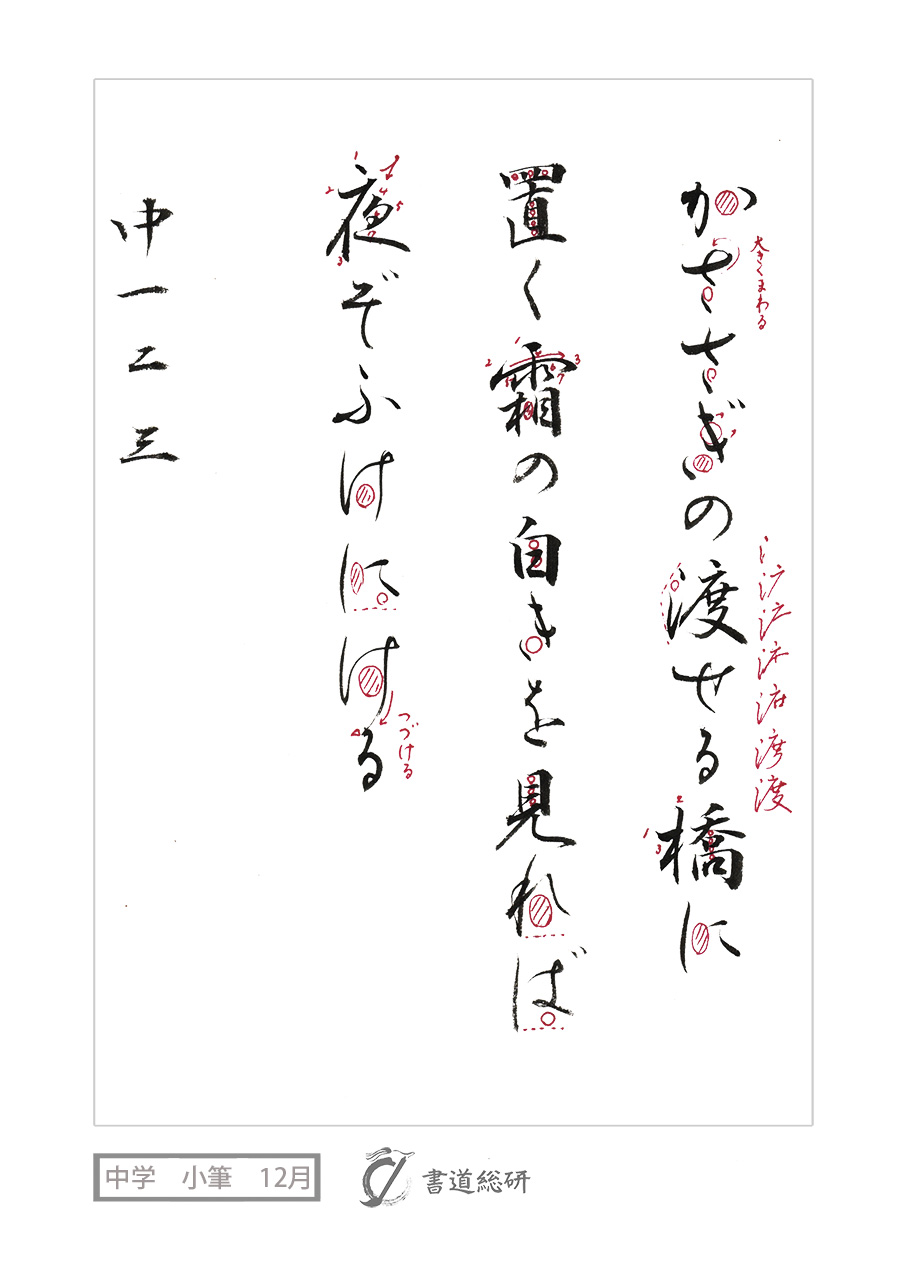 かささぎの渡せる橋に
大きくまわる
置く霜の白きを見れば
夜ぞふけにける
つづける
中一二三
中学 小筆 12月
書道総研